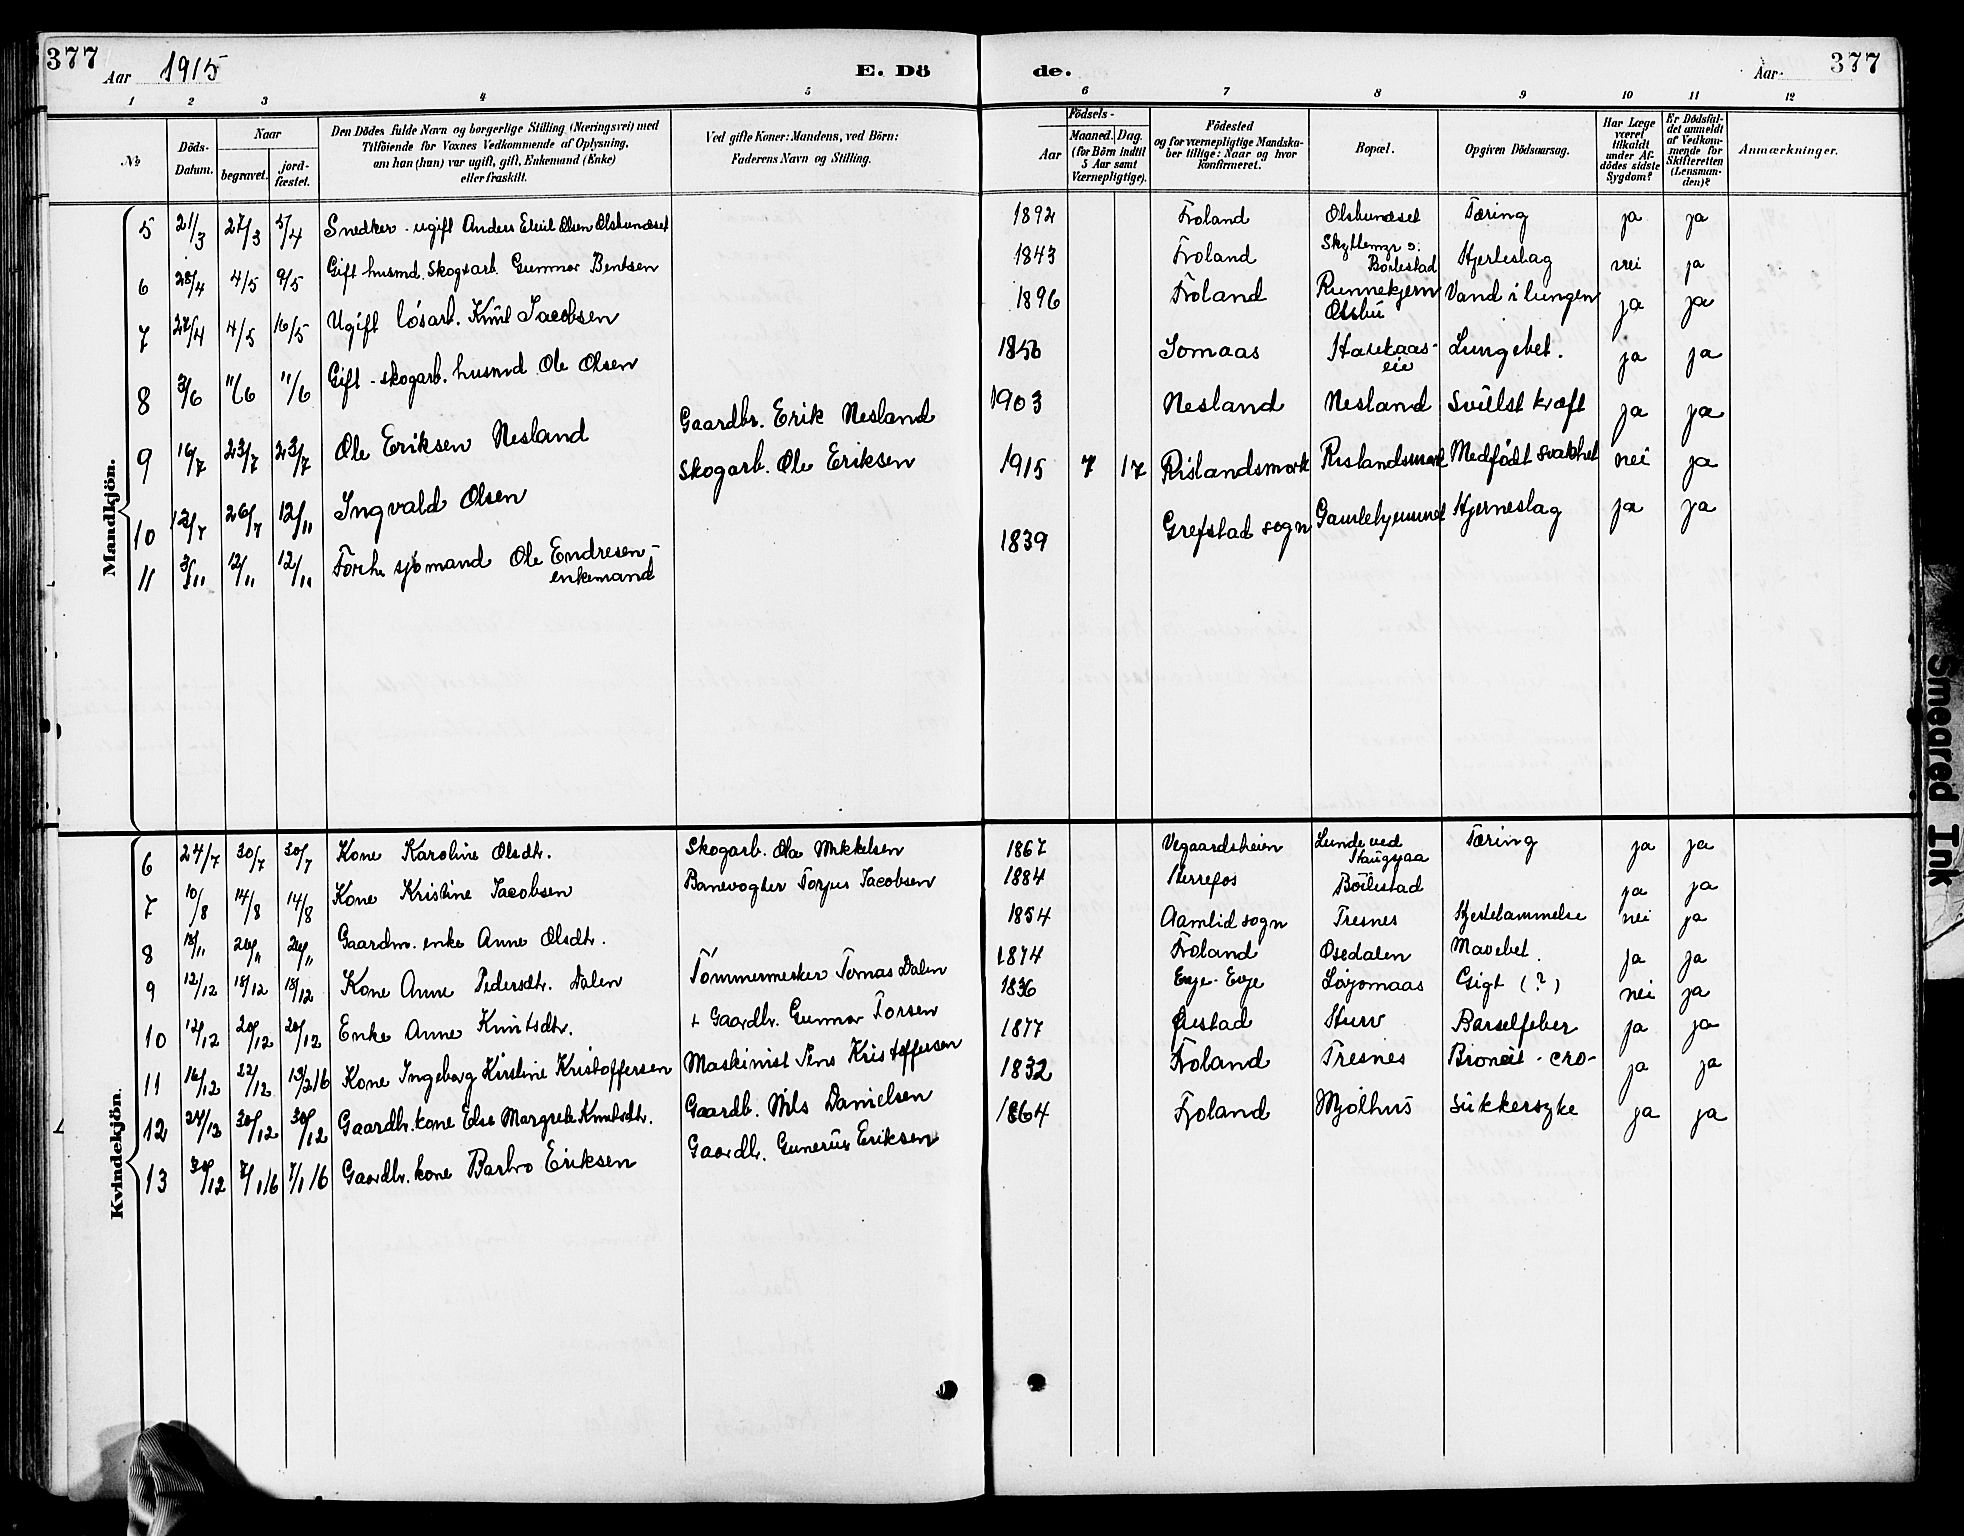 377 Aar 1915 E. Dö
de. Aar 377
1 2 3 4 5 6 7 8 9 10 11 12
No
Döds-Datum.
Naar
begravet.
jord-fæstet.
Den Dödes fulde Navn og borgerlige Stilling (Næringsvei) med
Tilföiende for Voxnes Vedkommende af Oplysning,
om han (hun) var ugift, gift, Enkemand (Enke)
eller fraskilt.
Ved gifte Koner: Mandens, ved Börn:
Faderens Navn og Stilling.
Födsels-
Aar
Maaned. Dag.
(for Börn indtil
5 Aar samt
Værnepligtige).
Födested
og for værnepligtige Mandska-
ber tillige: Naar og hvor
konfirmeret.
Bopæl.
Opgiven Dödsaarsag.
Har Læge
været
tilkaldt
under Af-
dödes sidste
Sygdom?
Er Dödsfal-
det anmeldt
af Vedkom-
mende for
Skifteretten
(Lensman-
den)?
Anmærkninger.
Mandkjön.
5 21/3 27/3 5/4 Snedker - ugift Anders Olsen 1892 Froland Tæring ja ja
6 28/4 4/5 9/5 Gift husmd. Skogsarb. Gunnar Bentsen 1843 Froland Bøilestad Hjerteslag nei ja
7 27/4 4/5 16/5 Ugift løsarb. Knut Jacobsen 1896 Froland Vand i lungen ja ja
8 3/6 11/6 11/6 Gift - skogarb. husmd Ole Olsen 1856 Lungebet. ja ja
9 16/7 23/7 23/7 Ole Eriksen Nesland Gaardbr. Erik Nesland 1903 Nesland Nesland ja ja
10 26/7 12/11 Ingvald Olsen Skogarb. Ole Eriksen 1915 7 17 Rislandsmork Medfødt svakhet nei ja
11 3/11 12/11 12/11 sjømand Ole Endresen -
enkemand 1839 Grefstad sogn Gamlehjemmet Hjerneslag ja ja
Kvindekjön.
6 24/7 30/7 30/7 Kone Karoline Olsdtr. Skogarb. Ole Mikkelsen 1867 Vegaardsheien Lunde ved Tæring ja ja
7 10/8 14/8 14/8 Kone Kristine Jacobsen Banevogter Torjus Jacobsen 1884 Herrefos Bøilestad ja ja
8 18/11 26/11 26/11 Gaardm. enke Anne Olsdtr. 1854 Aamlid sogn Tresnes Hjertelammelse nei ja
9 12/12 18/12 18/12 Kone Anne Pedersdtr. Dalen Tømmermerker Tomas Dalen 1874 Froland Osedalen Mavebet. ja ja
10 12/12 20/12 20/12 Enke Anne Knutsdtr. + Gaardbr. Gunnar Torsen 1836 Evje - Evje Gigt (?) nei ja
11 16/12 22/12 Kone Ingeborg Kirstine Kristoffersen Maskinist Jens Kristoffersen 1877 Barselfeber ja ja
12 30/12 30/12 Gaardbr. kone Else Margrete Knutsdtr. Gaardb. Nils Danielsen 1832 Froland Tresnes ja ja
13 30/12 7/1 16 7/1 16 Gaardbr. kone Barbro Eriksen Gaardbr. Gunerius Eriksen 1864 Froland Mjølhus Sukkersyke ja ja
Smeared Ink